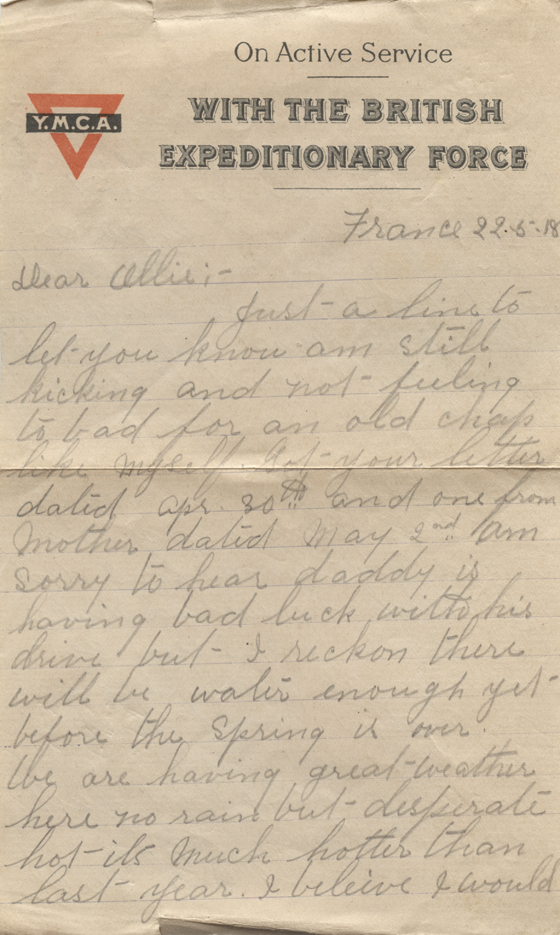 On Active Service
WITH THE BRITISH
Y.M.C.A.
EXPEDITIONARY FORCE
France 22.5.18
Dear Ollie;-
Just a line to
let you know am still
kicking and not feeling
to bad for an old chap
like myself. Got your letter
dated apr. 30th and one from
Mother dated May 2nd am
sorry to hear daddy is
having bad luck with his
drive but I reckon there
will be water enough yet
before the spring is over.
We are having great weather
here no rain but desperate
hot its much hotter than
last year. I beleive I would